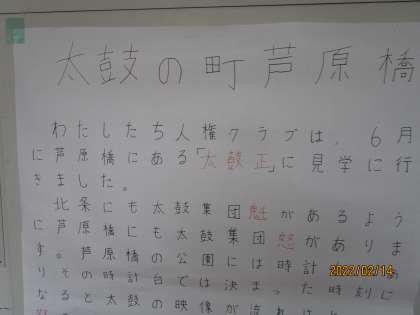 太鼓の町芦原橋
わたしたち人権クラブは、6月
に芦原橋にある「太鼓正」に見学に行
きました。
北条にも太鼓集団魁があるよう
に芦原橋にも太鼓集団怒がありま
す。芦原橋の公園には時計
りその時計台では決まった時刻に
なると太鼓の映像が流れ
2022/02/14